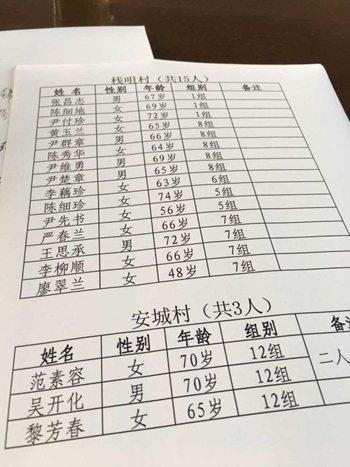 栈咀村（共15人）
姓名 性别 年龄 组别 备注
张昌志 男 67岁 1组
陈细地 女 69岁 1组
尹付珍 女 72岁 1组
黄玉兰 女 65岁 8组
尹群章 男 66岁 8组
陈秀华 女 64岁 8组
尹维勇 男 69岁 8组
尹楚章 男 65岁 8组
李藕珍 女 63岁 6组
陈细珍 女 74岁 5组
尹先书 女 56岁 5组
严春兰 女 66岁 7组
王思承 男 72岁 7组
李柳顺 女 66岁 7组
廖翠兰 女 48岁 7组
安城村（共3人）
姓名 性别 年龄 组别 备
范素容 女 70岁 12组 二人
吴开化 男 70岁 12组
黎芳春 女 65岁 12组